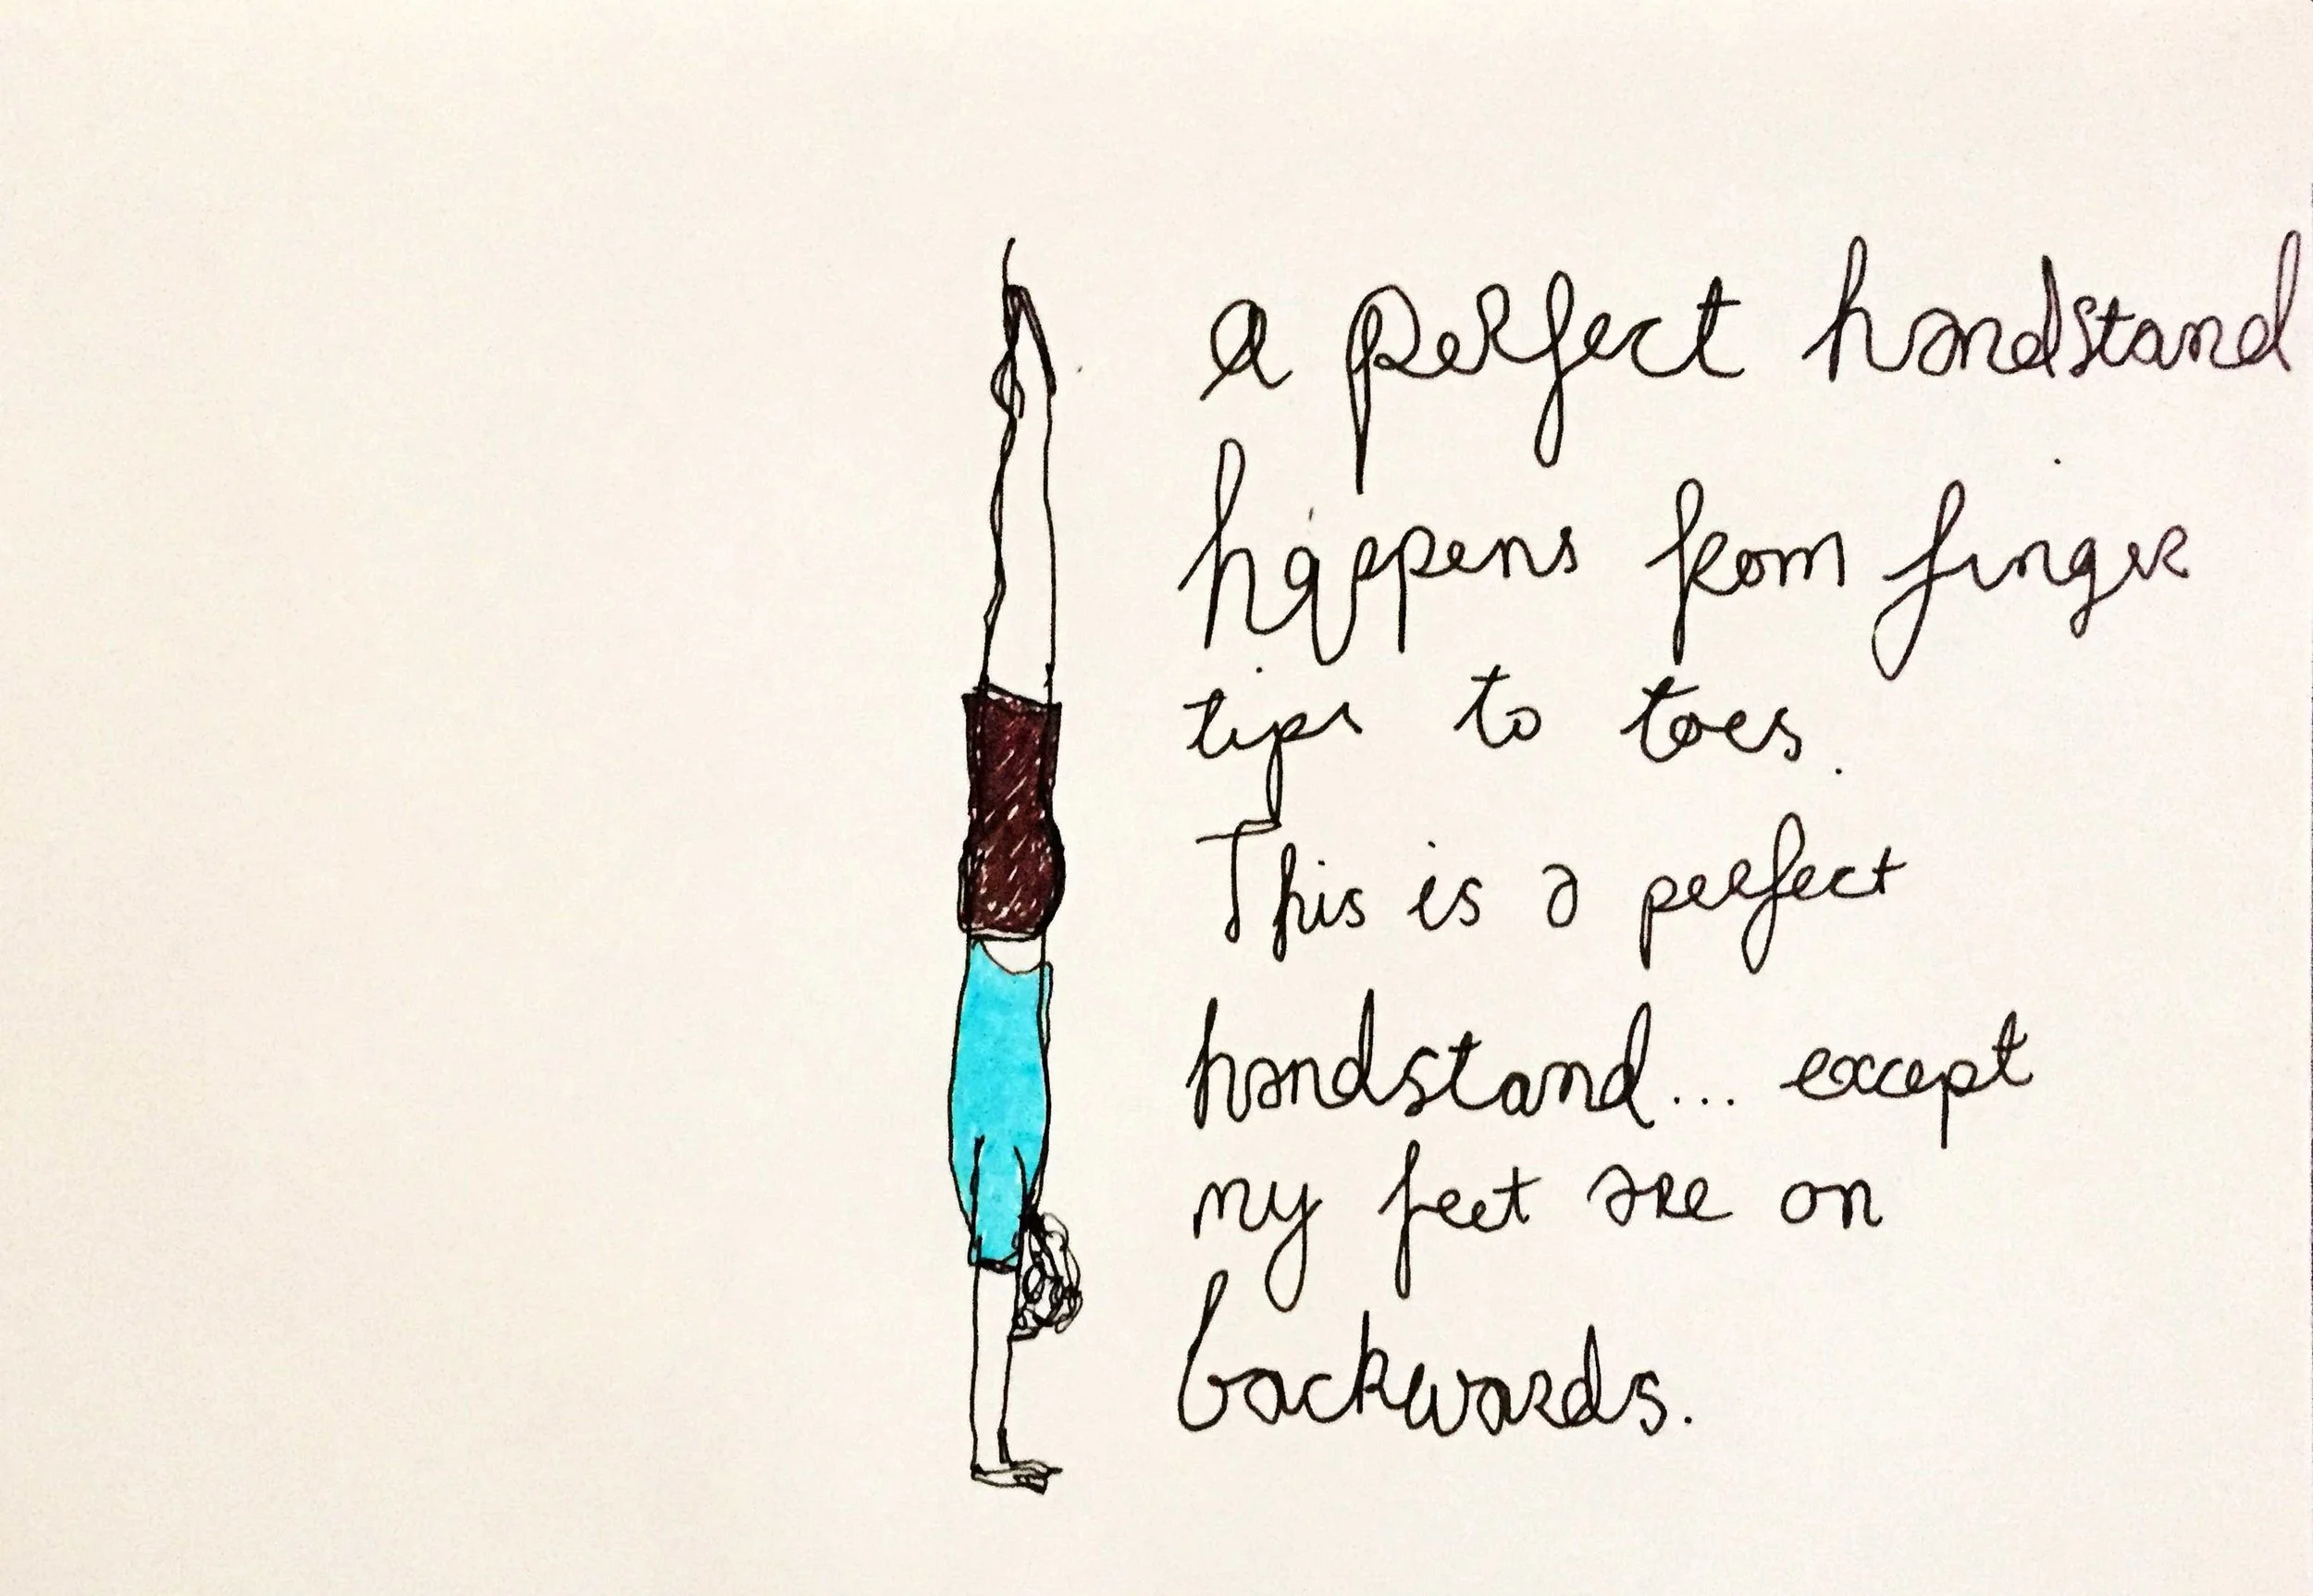 a perfect handstand
happens from finger
tips to toes.
This is a perfect
handstand... except
my feet are on
backwards.